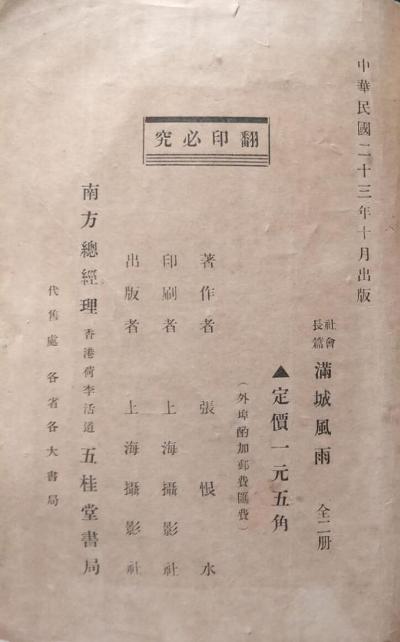 中華民國二十三年十月出版
社會長篇 滿城風雨 全二册
▲定價一元五角
(外埠酌加郵費匯費)
翻印必究
著作者 張恨水
印刷者 上海攝影社
出版者 上海攝影社
南方總經理 香港荷李活道 五桂堂書局
代售處 各省各大書局